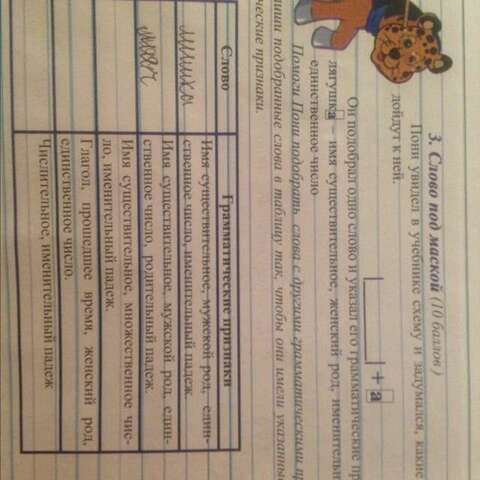 3. Слово под маской (10 баллов)
Пони увидел в учебнике схему и задумался, какие
дойдут к ней.
+ а
Он подобрал одно слово и указал его грамматические пр
лягушка – имя существительное, женский род, именительн
единственное число
Помоги Пони подобрать слова с другими грамматическими пр
пиши подобранные слова в таблицу так, чтобы они имели указанны
ческие признаки.
Слово Грамматические признаки
Имя существительное, мужской род, един-
ственное число, именительный падеж
Имя существительное, мужской род, един-
ственное число, родительный падеж.
Имя существительное, множественное чис-
ло, именительный падеж.
Глагол, прошедшее время, женский род,
единственное число.
Числительное, именительный падеж